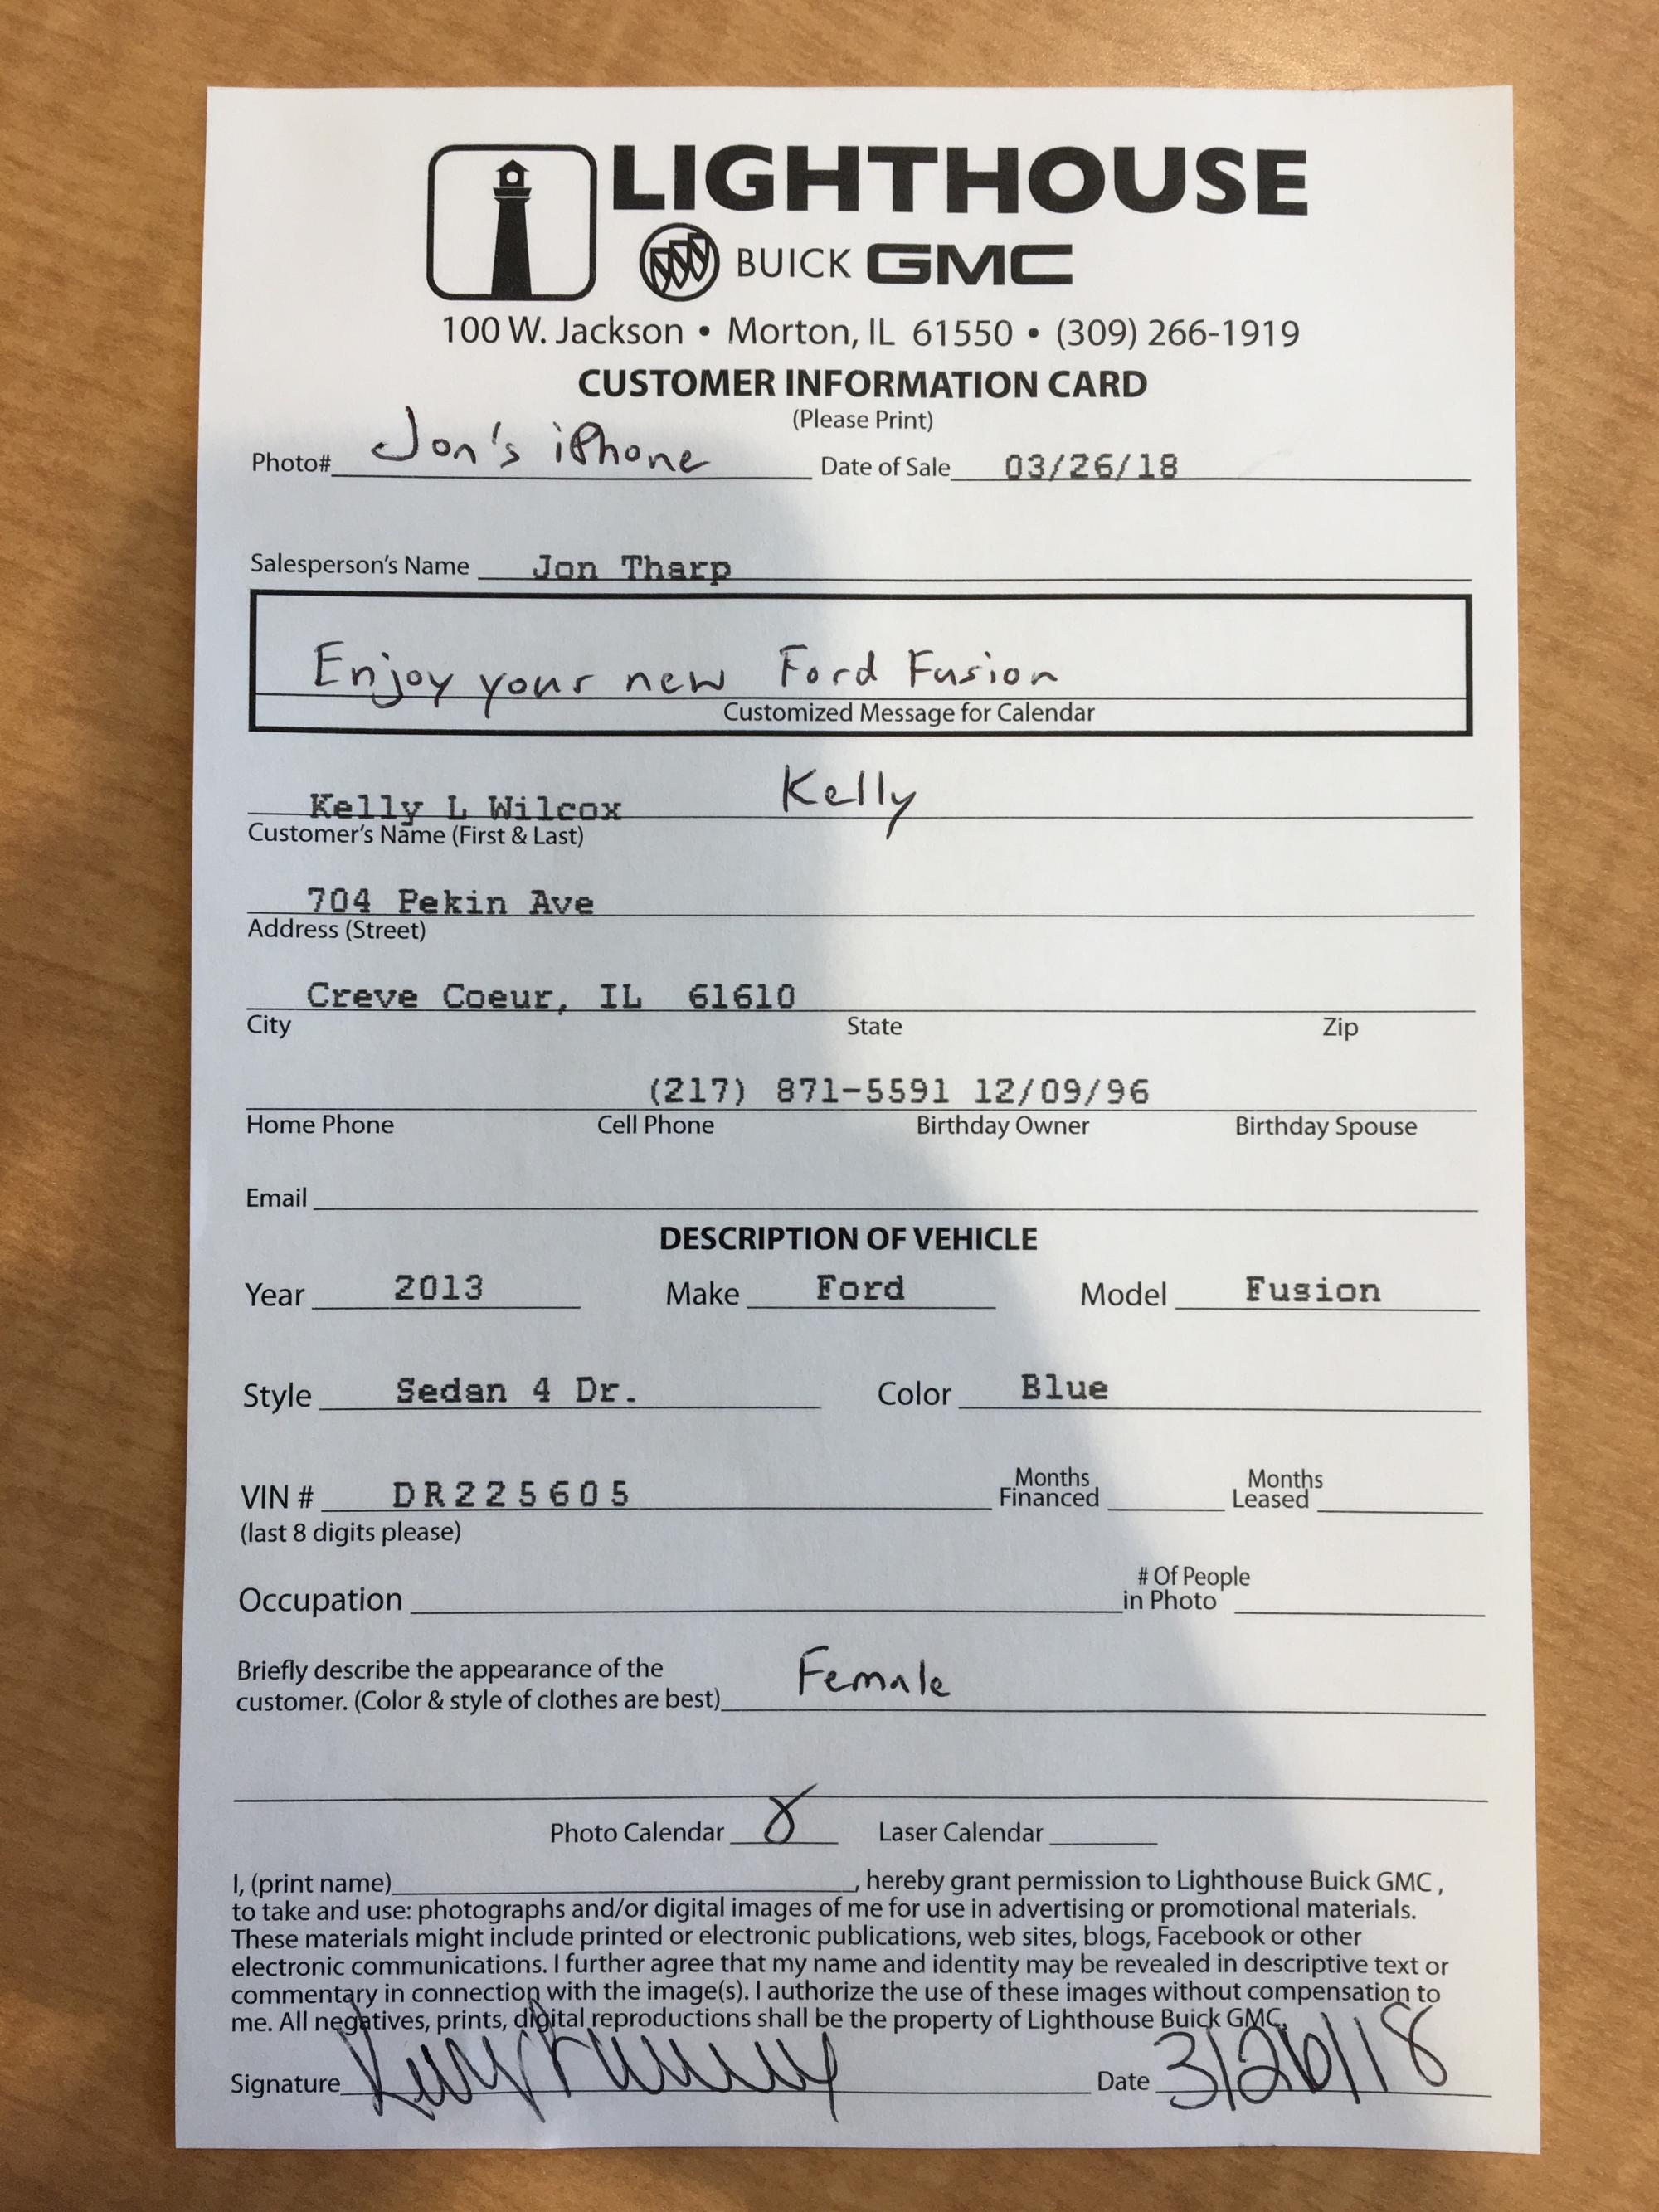 LIGHTHOUSE
BUICK GMC
100 W. Jackson • Morton, IL 61550 • (309) 266-1919
CUSTOMER INFORMATION CARD
(Please Print)
Photo# Jon's iPhone Date of Sale 03/26/18
Salesperson's Name Jon Tharp
Enjoy your new Ford Fusion
Customized Message for Calendar
Kelly L Wilcox Kelly
Customer's Name (First & Last)
704 Pekin Ave
Address (Street)
Creve Coeur, IL 61610
City State Zip
(217) 871-5591 12/09/96
Home Phone Cell Phone Birthday Owner Birthday Spouse
Email
DESCRIPTION OF VEHICLE
Year 2013 Make Ford Model Fusion
Style Sedan 4 Dr. Color Blue
VIN # DR225605 Months Financed Months Leased
(last 8 digits please)
Occupation # Of People in Photo
Briefly describe the appearance of the
customer. (Color & style of clothes are best) Female
Photo Calendar Laser Calendar
I, (print name) , hereby grant permission to Lighthouse Buick GMC ,
to take and use: photographs and/or digital images of me for use in advertising or promotional materials.
These materials might include printed or electronic publications, web sites, blogs, Facebook or other
electronic communications. I further agree that my name and identity may be revealed in descriptive text or
commentary in connection with the image(s). I authorize the use of these images without compensation to
me. All negatives, prints, digital reproductions shall be the property of Lighthouse Buick GMC.
Signature Date 3/26/18